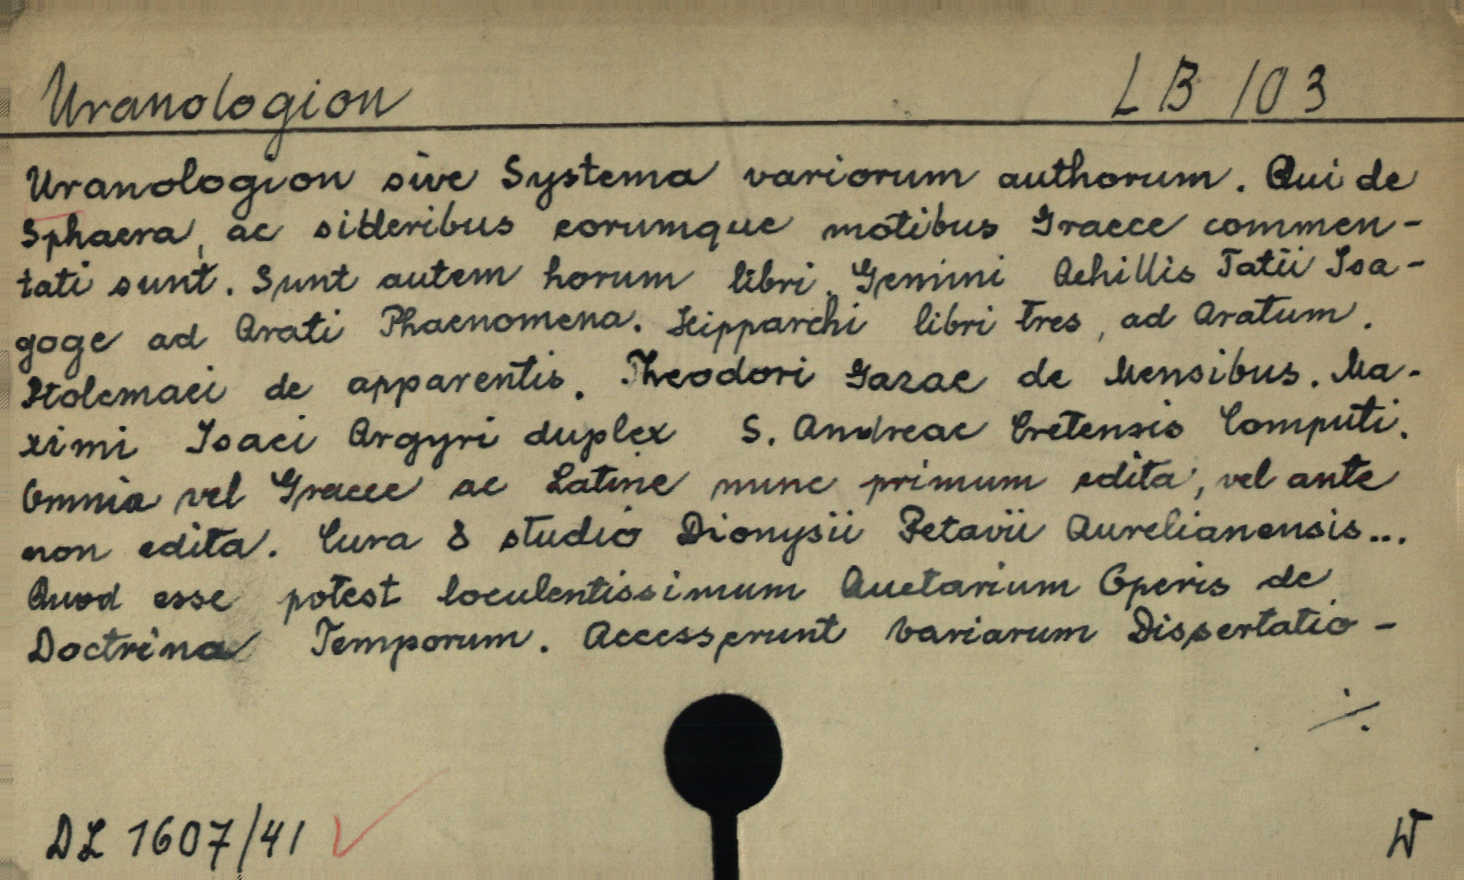 Uranologion LB 103
Uranologion sive Systema variorum authorum. Qui de
Sphaera, ac sideribus eorumque motibus Graece commen-
tati sunt. Sunt autem horum libri. Gemini Achillis Tatii Isa-
goge ad Arati Phaenomena. Hipparchi libri tres, ad Aratum.
Ptolemaei de apparentis. Theodori Gazae de Mensibus. Ma-
ximi Isaci Argyri duplex S. Andreae Cretensis Computi.
Omnia vel Graece ac Latine nunc primum edita, vel ante
non edita. Cura & studio Dionysii Petavii Aurelianensis...
Quod esse potest loculentissimum Auctarium Operis de
Doctrina Temporum. Accesserunt Variarum Dissertatio-
./.
DL 1607/41 W